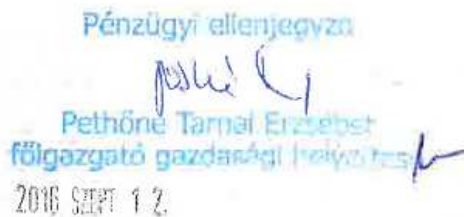 Pénzügyi ellenjegyző
Pethőné Tarnai Erzsébet
főigazgató gazdasági helyettes
2016 SZEPT 1 2.